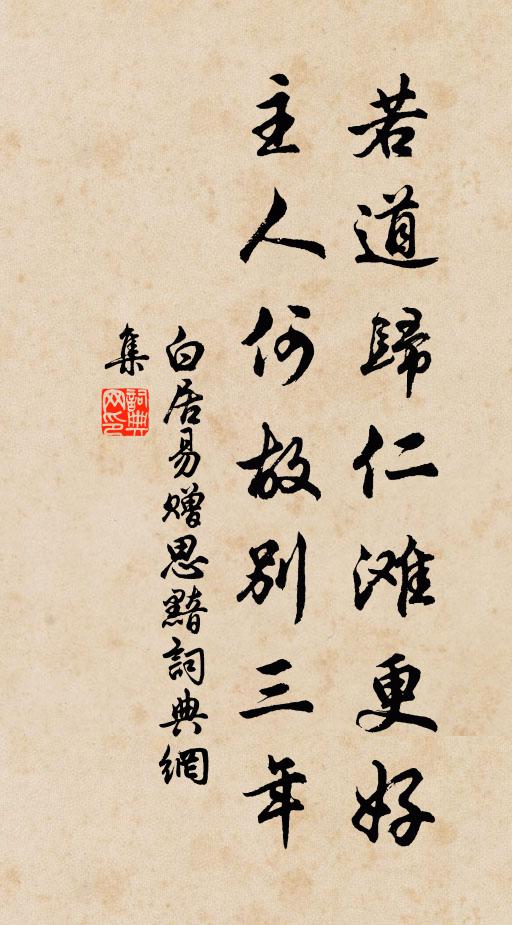 若道歸仁滩更好
主人何故别三年
白居易贈思黯詞典網
集
詞典网印